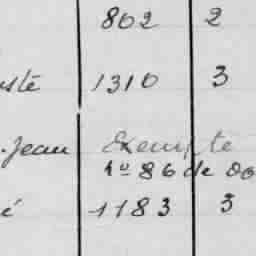 802 2
sté 1310 3
Jean Exempté
no 86 de
é 1183 3